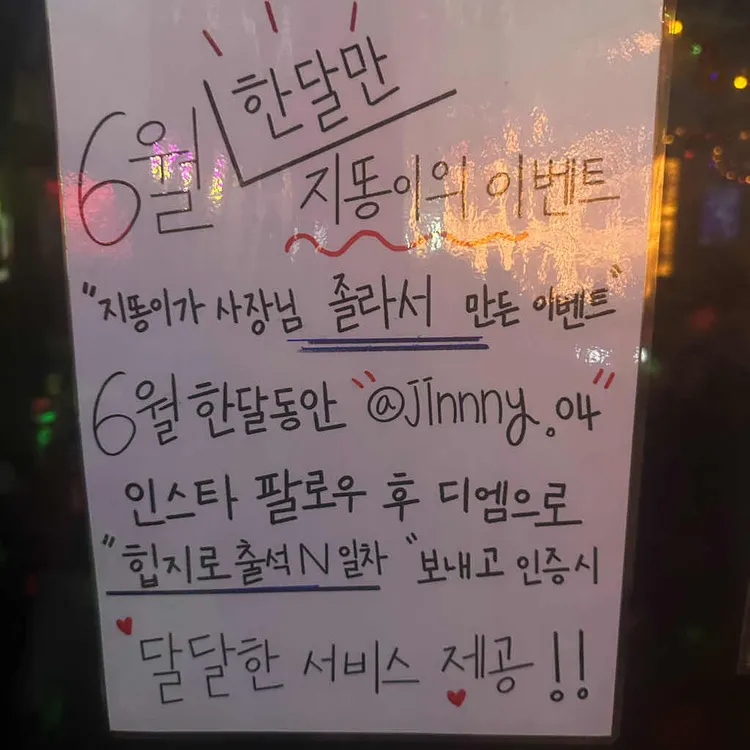 6월 한달만
지똥이의 이벤트
"지똥이가 사장님 졸라서 만든 이벤트"
6월 한달동안 "@jinnny.04"
인스타 팔로우 후 디엠으로
"힙지로출석 N일차" 보내고 인증시
달달한 서비스 제공!!